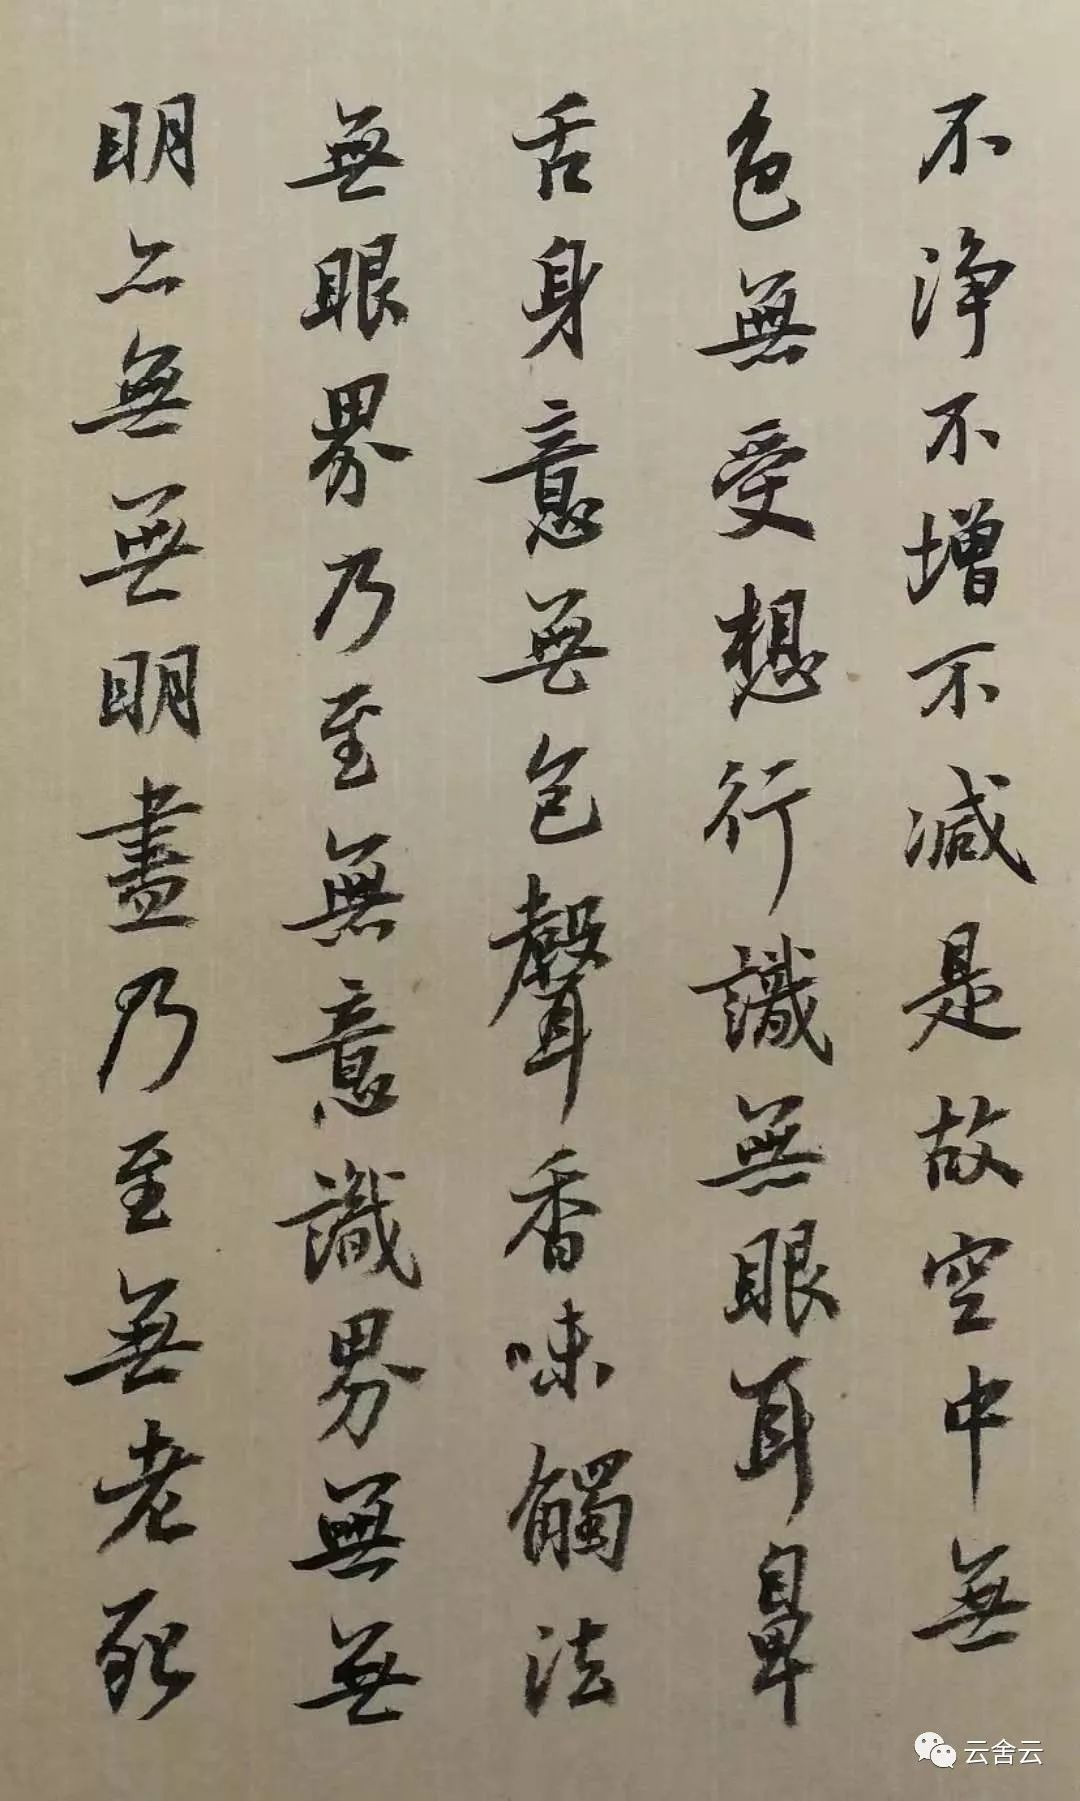 不淨不增不減是故空中無
色無受想行識無眼耳鼻
舌身意無色聲香味觸法
無眼界乃至無意識界無無
明亦無無明盡乃至無老死
云舍云